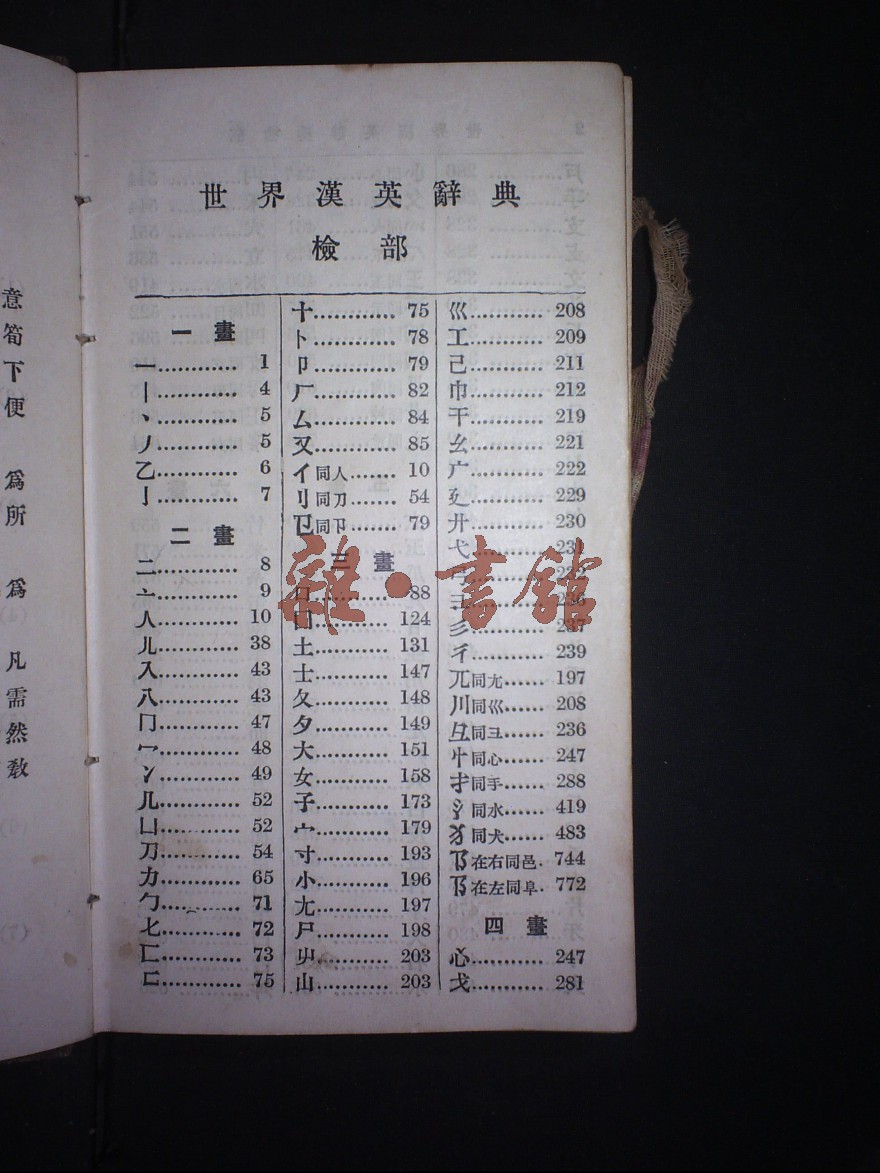 世界漢英辭典
檢部
一畫
一............1
丨............4
丶............5
丿............5
乙............6
亅............7
二畫
二............8
亠............9
人............10
儿............38
入............43
八............43
冂............47
冖............48
冫............49
几............52
凵............52
刀............54
力............65
勹............71
匕............72
匚............73
匸............75
十............75
卜............78
卩............79
厂............82
厶............84
又............85
亻同人........10
刂同刀........54
㔾同卩........79
三畫
口............88
囗............124
土............131
士............147
夂............148
夕............149
大............151
女............158
子............173
宀............179
寸............193
小............196
尢............197
尸............198
屮............203
山............203
巛............208
工............209
己............211
巾............212
干............219
幺............221
广............222
廴............229
廾............230
弋............231
彐............236
彡............237
彳............239
兀同尢........197
川同巛........208
彑同彐........236
忄同心........247
扌同手........288
氵同水........419
犭同犬........483
阝在右同邑.744
阝在左同阜.772
四畫
心............247
戈............281
意筍下便
爲所
爲
凡需然敎
雜·書館